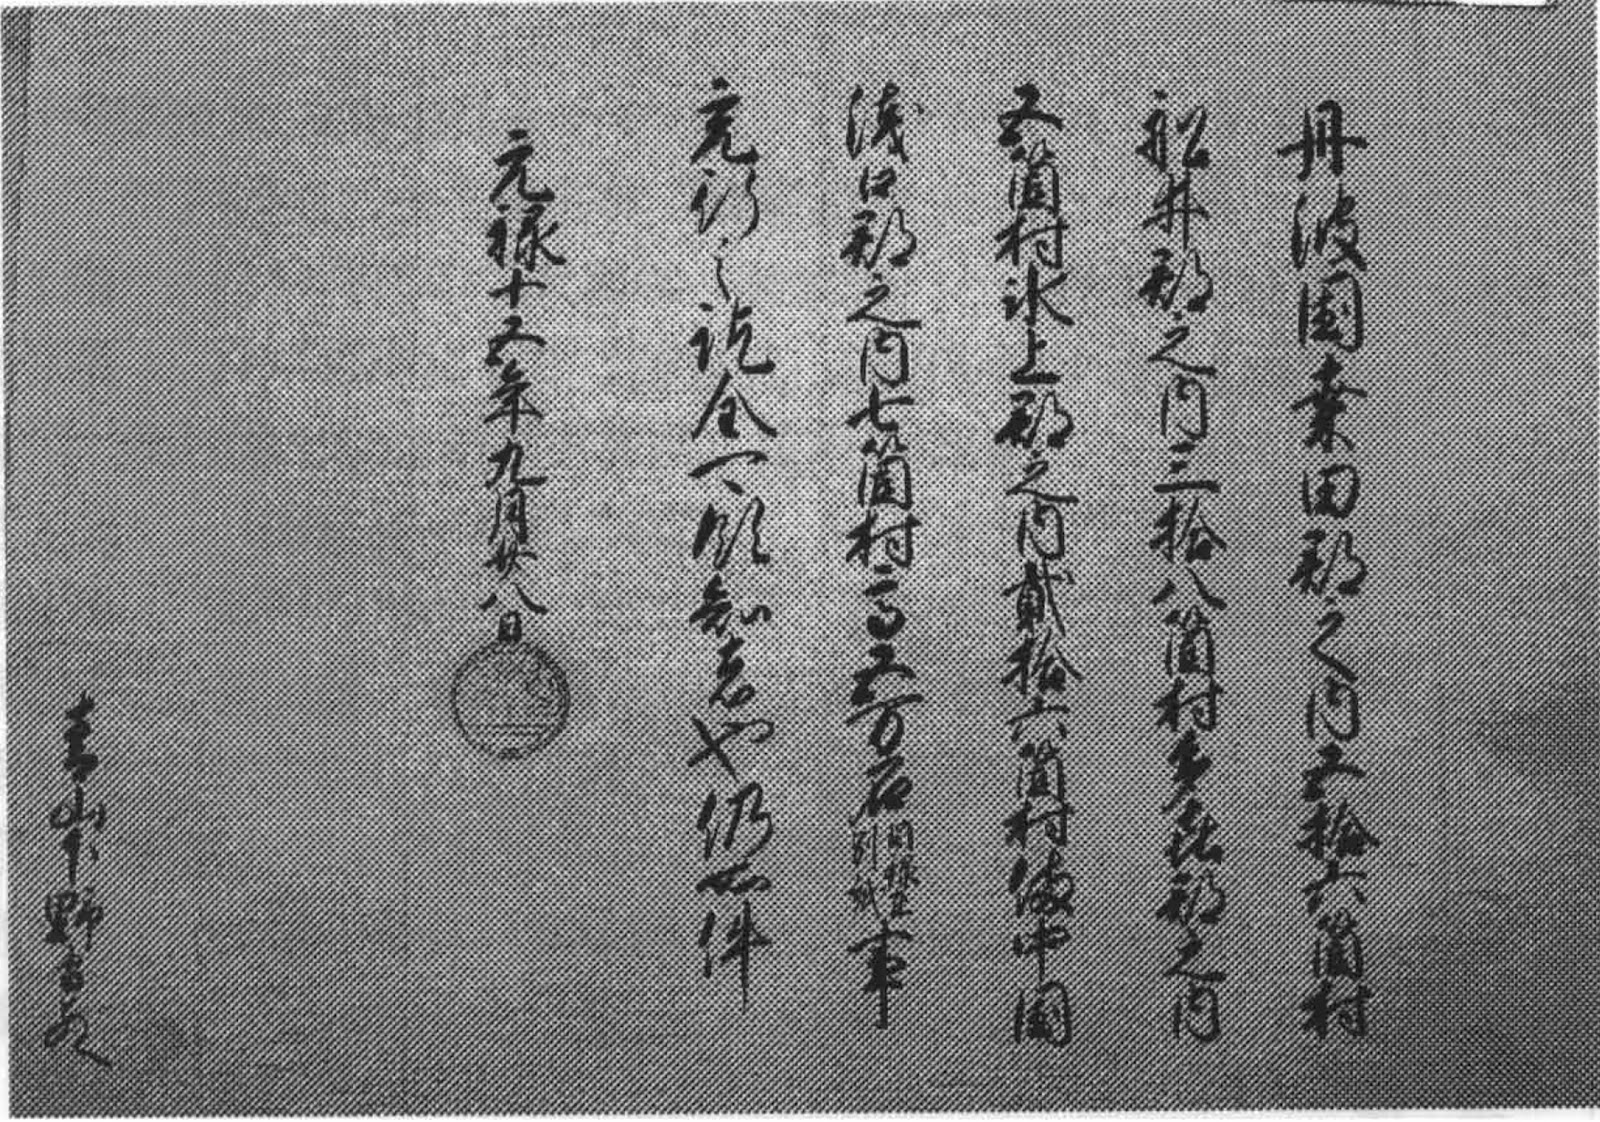 丹波国桑田郡之内五拾六箇村
船井郡之内三拾八箇村多紀郡之内
五箇村氷上郡之内貳拾六箇村備中国
浅口郡之内七箇村高五万石目録在別紙事
充行之訖全可領知者也仍如件
元禄十五年九月廿八日
青山下野守とのへ